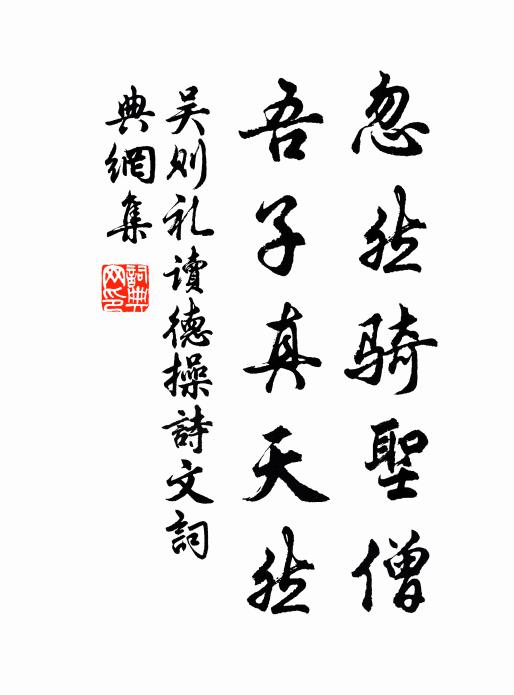 忽然騎聖僧
吾子真天然
吴则礼讀德操詩文詞
典網集
詞典网印